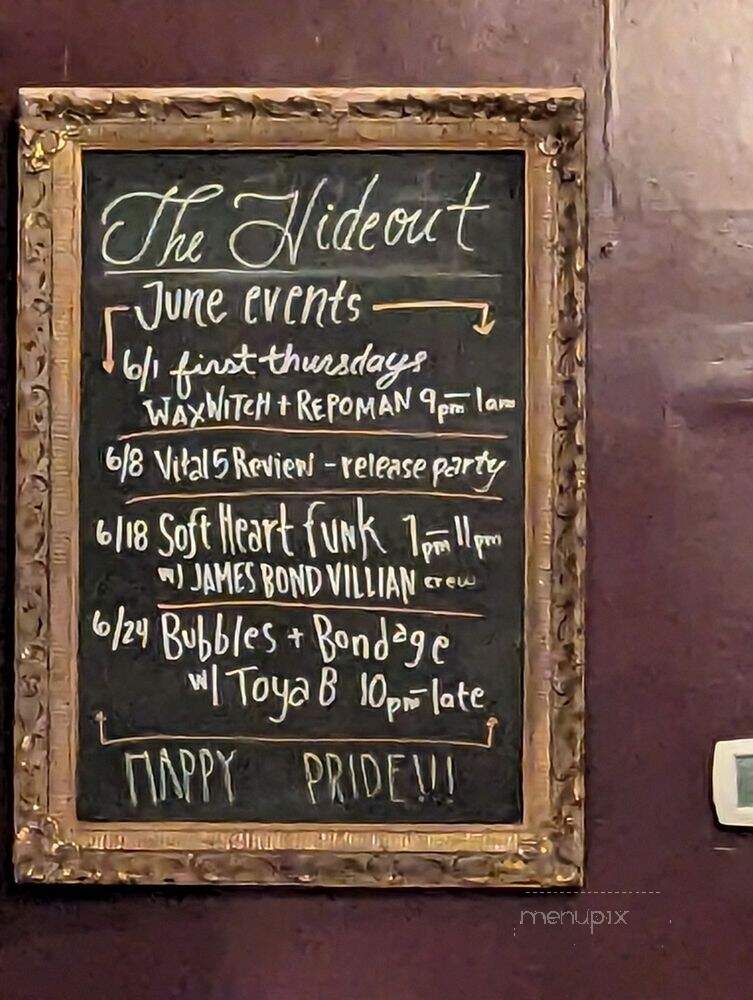 The Hideout
June events
6/1 first thursdays
WAXWITCH + REPOMAN 9pm-1am
6/8 Vital 5 Review - release party
6/18 Soft Heart funk 7pm-11pm
w/ JAMES BOND VILLIAN crew
6/24 Bubbles + Bondage
w/ Toya B 10pm-late
HAPPY PRIDE!!!
menupix